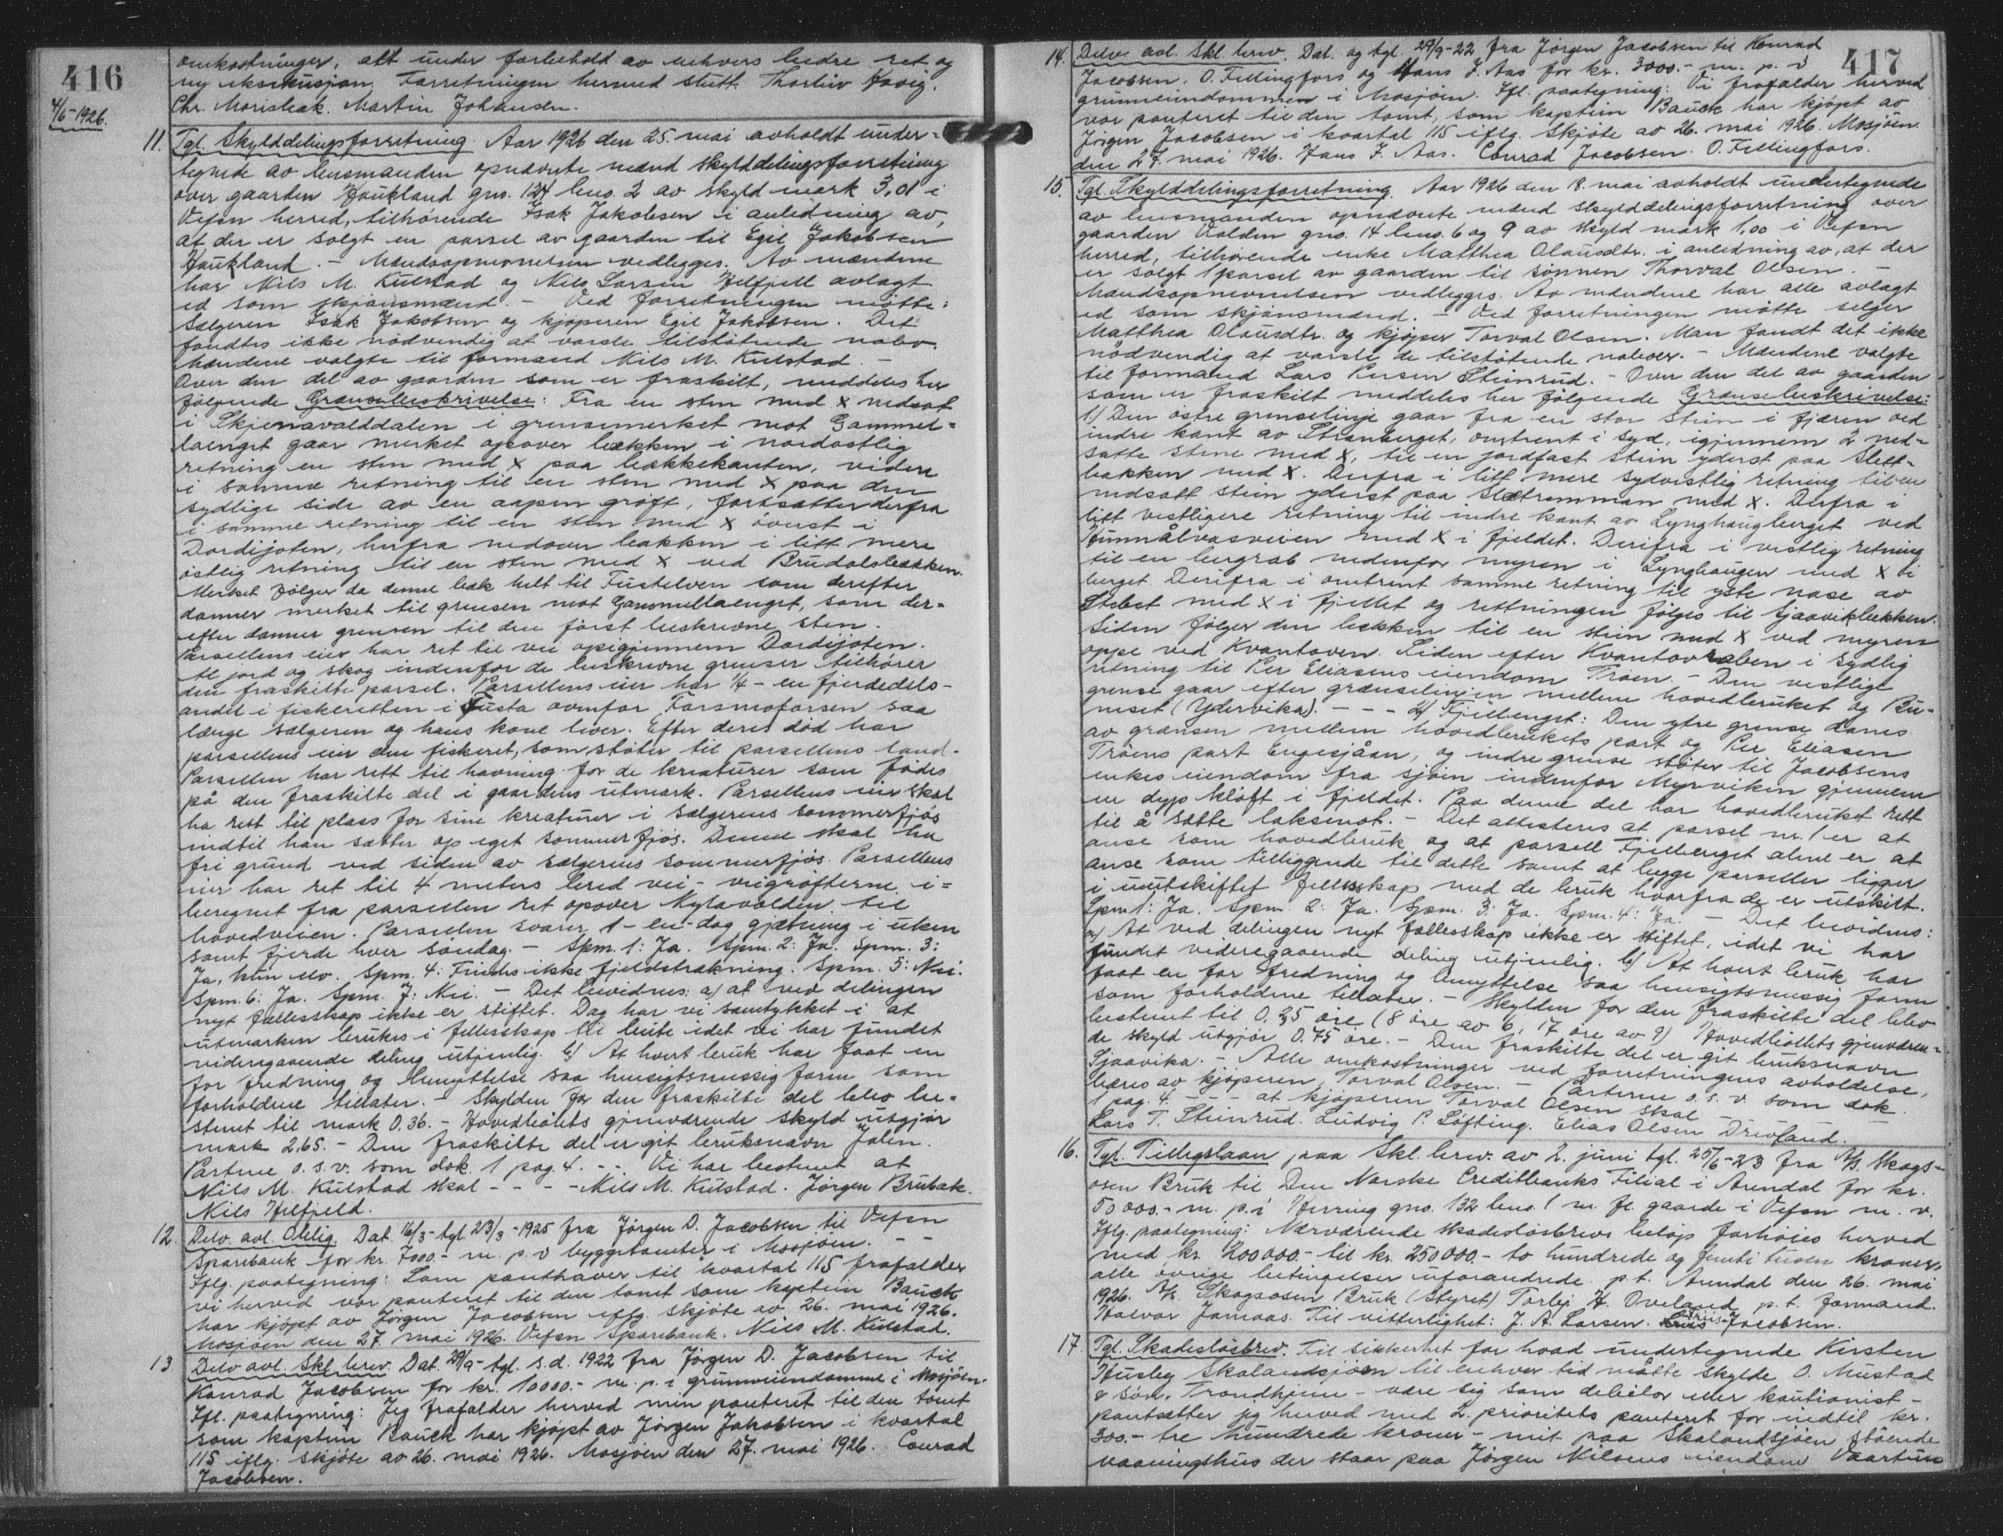 416
4/6-1926.
omkostninger, alt under forbehold av enhvers bedre ret og
ny eksekusjon. Forretningen hermed slutt. Thorleiv Havig.
Chr. Marialeak. Martin Johansen.
11. Tgl. Skylddelingsforretning. Aar 1926 den 25. mai avholdt under=
tegnede av lensmanden opnævnte mænd skylddelingsforretning
over gaarden Haukland gno. 124 bno. 2 av skyld mark 3,01 i
Vefsn herred, tilhørende Isak Jakobsen i anledning av,
at der er solgt en parsel av gaarden til Egil Jakobsen
Haukland. - Mændsopnevnelsen vedlegges. Av mændene
har Nils M. Kulstad og Nils Larsen Helfjell avlagt
ed som skjønsmænd. - Ved forretningen møtte:
Sælgeren Isak Jakobsen og kjøperen Egil Jakobsen. Det
fandtes ikke nødvendig at varsle tilstøtende nabo.
Mændene valgte til formand Nils M. Kulstad -
Over den del av gaarden som er fraskilt, meddeles her
følgende Grænsebeskrivelse: Fra en sten med x nedsat
i Skjenavalddalen i grensemerket mot Gammel=
laenget gaar merket opover bækken i nordostlig
retning en sten med x paa bækkekanten, videre
i samme retning til en sten med x paa den
sydlige side av en aapen grøft, fortsætter derfra
i samme retning til en sten med x øverst i
Dordijoten, herfra nedover bakken i litt mere
østlig retning til en sten med x ved Brudalsbækken.
Merket følger da denne bæk helt til Fustelven som derefter
danner merket til grensen mot Gammellaenget, som der=
efter danner grensen til den først beskrevne sten.
Parsellens eier har ret til vei opigjennem Dordijoten.
Al jord og skog indenfor de beskrevne grenser tilhører
den fraskilte parsel. Parsellens eier har 1/4 - en fjerdedels-
andel i fiskeretten i Fusta ovenfor Forsmoforsen saa
længe sælgeren og hans kone lever. Efter deres død har
parsellens eier den fiskeret, som støter til parsellens land.
Parsellen har rett til havning for de kreaturer som fødes
på den fraskilte del i gaardens utmark. Parsellens eier skal
ha rett til plass for sine kreaturer i sælgerens sommerfjøs
indtil han sætter op eget sommerfjøs. Denne skal ha
fri grund ved siden av sælgerens sommerfjøs. Parsellens
eier har ret til 4 meters bred vei - veigrøfterne i=
beregnet fra parsellen ret opover Nylavolden til
hovedveien. Parsellen svarer 1 - en - dag gjætning i uken
samt fjerde hver søndag. - Spm. 1: Ja. Spm. 2: Ja. Spm. 3:
Ja, hun elv. Spm. 4: Findes ikke fjeldstrækning. Spm. 5: Nei.
Spm. 6: Ja. Spm. 7: Nei. - Det bevidnes: a) at ved delingen
nyt fællesskap ikke er stiftet. Dag har vi samtykket i at
utmarken brukes i fellesskap til beite idet vi har fundet
videregaaende deling utjenlig. b) At hvert bruk har faat en
for fredning og benyttelse saa hensigtsmessig form som
forholdene tillater. - Skylden for den fraskilte del blev be=
stemt til mark 0.36. - Hovedbølets gjenværende skyld utgjør
mark 2.65. - Den fraskilte del er git bruksnavn Jalen.
Partene o.s.v. som dok. 1 pag. 4. - - Vi har bestemt at
Nils M. Kulstad skal - - - - Nils M. Kulstad. Jørgen Brubak.
Nils Helfjeld.
12. Delv. avl. Oblig. Dat. 16/3 - tgl 23/3 - 1925 fra Jørgen D. Jacobsen til Vefsn
Sparebank for kr. 7000.- m. p. i byggetomter i Mosjøen. - -
Iflg. paategning: Som panthaver til kvartal 115 frafalder
vi herved vor panteret til den tomt som kaptein Bauck
har kjøpt av Jørgen Jacobsen iflg. skjøte av 26. mai 1926.
Mosjøen den 27. mai 1926. Vefsn Sparebank. Nils M. Kulstad.
13. Delv avl. Skl. brev Dat. 29/9 - tgl. s.d. 1922 fra Jørgen D. Jacobsen til
Konrad Jacobsen for kr. 10000.- m. p. i grunneiendomme i Mosjøen.
Ifl. paategning: Jeg frafalder herved min panteret til den tomt
som kaptein Bauck har kjøpt av Jørgen Jakobsen i kvartal
115 iflg. skjøte av 26. mai 1926. Mosjøen den 27. mai 1926. Conrad
Jacobsen.
417
14. Delv. avl. Skl. brev. Dat. og tgl. 29/9-22 fra Jørgen Jacobsen til Konrad
Jacobsen. O. Fellingfors og Hans J. Aas for kr. 3000.- m. p. i
grunneiendommen i Mosjøen. Ifl. paategning: Vi frafalder herved
vor panteret til den tomt, som kaptein Bauck har kjøpt av
Jørgen Jacobsen i kvartal 115 iflg. skjøte av 26. mai 1926. Mosjøen
den 27. mai 1926. Hans J. Aas. Conrad Jacobsen. O. Fellingfors.
15. Tgl. Skylddelingsforretning. Aar 1926 den 18. mai avholdt undertegnede
av lensmanden opnævnte mænd skylddelingsforretning over
gaarden Valden gno. 14 bno. 6 og 9 av skyld mark 1,00 i Vefsn
herred, tilhørende enke Matthea Olausdtr. i anledning av, at der
er solgt 1 parsel av gaarden til sønnen Thorval Olsen. -
Mændsopnevnelsen vedlegges. Av mændene har alle avlagt
ed som skjønsmænd. - Ved forretningen møtte selger
Matthea Olausdtr. og kjøper Torval Olsen. Man fandt det ikke
nødvendig at varsle de tilstøtende naboer. - Mændene valgte
til formand Lars Persen Steinrud. - Over den del av gaarden
som er fraskilt meddeles her følgende Grænsebeskrivelse:
1) Den østre grenselinje gaar fra en stor Stein i fjæren ved
indre kant av Stranberget, omtrent i syd, igjennem 2 ned=
satte stene med x, til en jordfast stein yderst paa Slett=
bakken med x. Derfra i litt mere sydvestlig retning til en
nedsatt stein yderst paa Slætremman med x. Derfra i
litt vestligere retning til indre kant av Lynghaugberget ved
Hunnålvasveien med x i fjeldet. Derifra i vestlig retning
til en bergrab nedenfor myren i Lynghaugen med x i
berget. Derifra i omtrent samme retning til yste nase av
Stebet med x i fjellet og rettningen følges til Sjaavikbækken.
Siden følger den bækken til en stein med x ved myren
oppe ved Kvantoven. Siden efter Kvantovraben i sydlig
retning til Per Eliasens eiendom Trøen. - Den vestlige
grense gaar efter grænselinjen mellem hovedbruket og Bu=
neset (Ydervika). - - - 2) Fjellenget: Den ytre grense danes
av grænsen mellem hovedbrukets part og Per Eliasen
Trøens part Engesjåan, og indre grense støter til Jacobsens
enkes eiendom fra sjøen indenfor Myrvikén gjennem
en dyp kløft i fjeldet. Paa denne del har hovedbruket rett
til å sette laksenot. - Det attesteres at parsel nr. 1 er at
anse som hovedbruk og at parsell Fjellenget alene er at
anse som tilliggende til dette samt at begge parseller ligger
i uutskiftet fellesskap med de bruk hvorfra de er utskilt.
Spm 1: Ja. Spm. 2: Ja. Spm. 3: Ja. Spm. 4: Ja. - Det bevidnes:
a) At ved delingen nyt fællesskap ikke er stiftet, idet vi har
fundet videregaaende deling utjenlig. b) At hvert bruk har
faat en for fredning og benyttelse saa hensigtsmessig form
som forholdene tillater. - Skylden for den fraskilte del blev
bestemt til 0.25 øre (8 øre av 6, 17 øre av 9) Hovedbølets gjenværen=
de skyld utgjør 0.75 øre. - Den fraskilte del er git bruksnavn
Sjaavika. - Alle omkostninger ved forretningens avholdelse,
bæres av kjøperen, Torval Olsen. - Parterne o.s.v. som dok.
1 pag. 4. - - - at kjøperen Torval Olsen skal -
Lars T. Steinrud. Ludvig P. Søfting. Elias Olsen Drevland.
16. Tgl. Tilleggslaan paa Skl. brev. av 2. juni tgl. 25/6-23 fra A/S. Skogs=
osen Bruk til Den Norske Creditbanks Filial i Arendal for kr.
50000.- m. p. i Herring gno. 132 bno. 1 m. fl. gaarde i Vefsn m. v.
Iflg. paategning: Nærværende skadesløsbrevs beløp forhøies herved
med kr. 200000.- til kr. 250000.- to hundrede og femti tusen kroner,
alle øvrige betingelser uforandrede. p.t. Arendal den 26. mai
1926. A/S. Skogsosen Bruk (styret) Torlej H. Oveland p.t. formand.
Halvor Jamaas. Til vitterlighet: J. A. Larsen. Jacobsen.
17. Tgl. Skadesløsbrev. Til sikkerhet for hvad undertegnede Kirsten
Husby Skalandsjøen til enhver tid måtte skylde O. Mustad
& søn, Trondhjem - være sig som debitor eller kautionist -
pantsætter jeg herved med 2. prioritets panteret for indtil kr.
300.- tre hundrede kroner - mit paa Skalandsjøen stående
vaaningshus der staar paa Jørgen Nilsens eiendom Vaartun